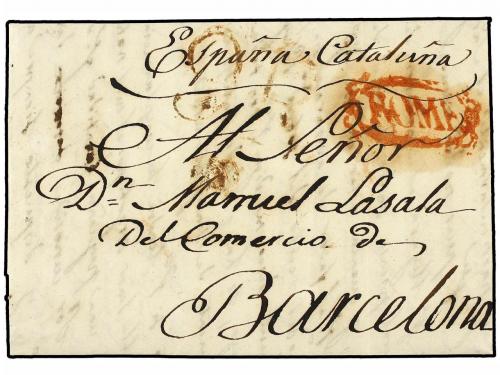 España Cataluña
ROME
Al Señor
Dn Manuel Lasala
Del Comercio de
Barcelona